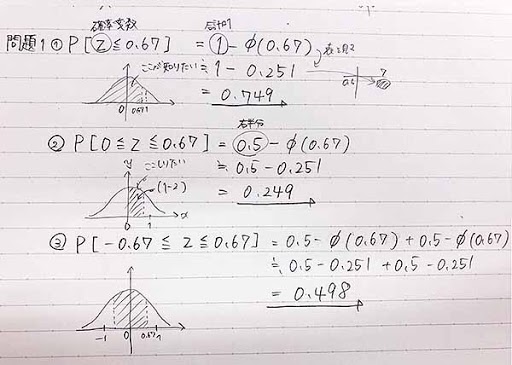 確率変数 合計1
問題1 ① P[Z≦0.67] = 1-φ(0.67) 表を見て
ここが知りたい ≒ 1-0.251 7
0.6
= 0.749
0 0.67 1
右半分
② P[0≦Z≦0.67] = 0.5-φ(0.67)
y ≒ 0.5-0.251
(1-2) = 0.249
0 1 x
③ P[-0.67≦Z≦0.67] = 0.5-φ(0.67)+0.5-φ(0.67)
≒ 0.5-0.251+0.5-0.251
= 0.498
-1 0 0.67 1